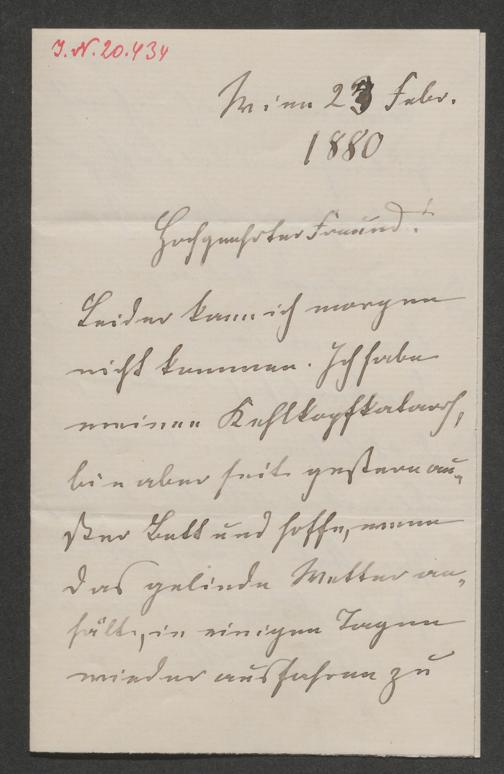 I.N. 20.434
Wien 23 Febr.
1880
Hochgeehrter Freund!
Leider kann ich morgen
nicht kommen. Ich habe
meinen Kehlkopfkatarrh,
bin aber seit gestern au-
ßer Bett und hoffe, wenn
das gelinde Wetter an-
hält, in einigen Tagen
wieder ausfahren zu